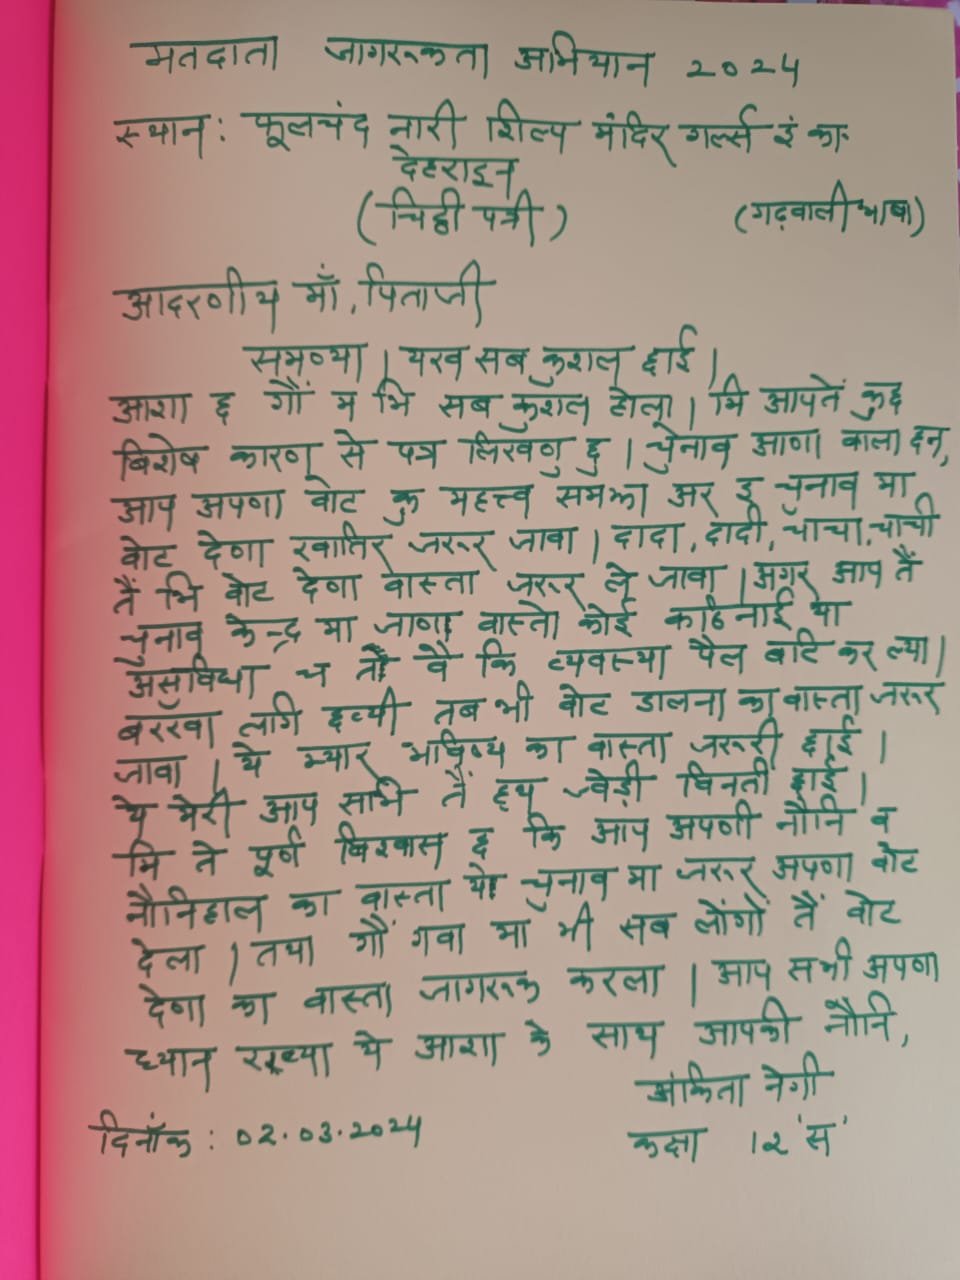 मतदाता जागरूकता अभियान २०२४
स्थान: फूलचंद नारी शिल्प मंदिर गर्ल्स इं का
देहरादून
(चिट्ठी पत्री)
(गढ़वाली भाषा)
आदरणीय माँ, पिताजी
समन्या। यख सब कुशल छाई।
आशा छ गौं म भि सब कुशल होला। मि आपतें कुछ
विशेष कारण से पत्र लिखणु छु। चुनाव आणा वाला छन,
आप अपणा वोट कु महत्त्व समझा अर इ चुनाव मा
वोट देणा खातिर जरूर जावा। दादा, दादी, चाचा, चाची
तैं भि वोट देणा वास्ता जरूर ले जावा। अगर आप तैं
चुनाव केन्द्र मा जाणा वास्ता कोई कठिनाई या
असुविधा च तौ वै कि व्यवस्था पैल बटि कर ल्या।
बरखा लगि ह्व्यी तब भी वोट डालना का वास्ता जरूर
जावा। ये म्यार भविष्य का वास्ता जरूरी छाई।
ये मेरी आप सभि तैं हथ ज्वेड़ी विनती छाई।
मि तें पूर्ण विश्वास छ कि आप अपणी नौनि व
नौनिहाल का वास्ता ये चुनाव मा जरूर अपणा वोट
देला। तथा गौं गवा मा भी सब लोंगों तैं वोट
देणा का वास्ता जागरूक करला। आप सभी अपणा
ध्यान रख्या ये आशा के साथ आपकी नौनि,
अंकिता नेगी
दिनाँक: 02.03.2024
कक्षा 12 'स'